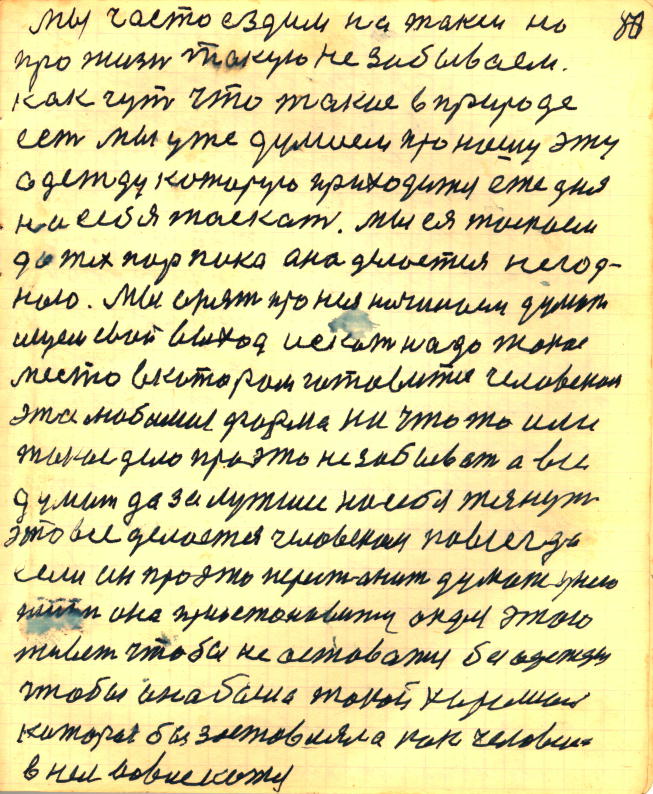 мы часто ездим на такси но 80
про жизн такую не забываем.
как чут что такие в природе
ест мы уже думаем про нашу эту
одежду которую приходится ёже дня
на себя таскат. мы ея таскаем
до тех пор пока ана делается негод-
ною. мы опят про нея начинаем думат
ищем свой выход искат надо такое
место в котором готовится человеком
эта любимая форма на что то или
такое дело про это не забыват а все
думат да за лутшие на себя тянут
это все делается человеком навсегда
если он про это перестанит думат у него
она приостановится он для этого
живет чтобы не остоватся без одежды
чтобы она была такой хорошай
которая бы заставляла как человека
в ней